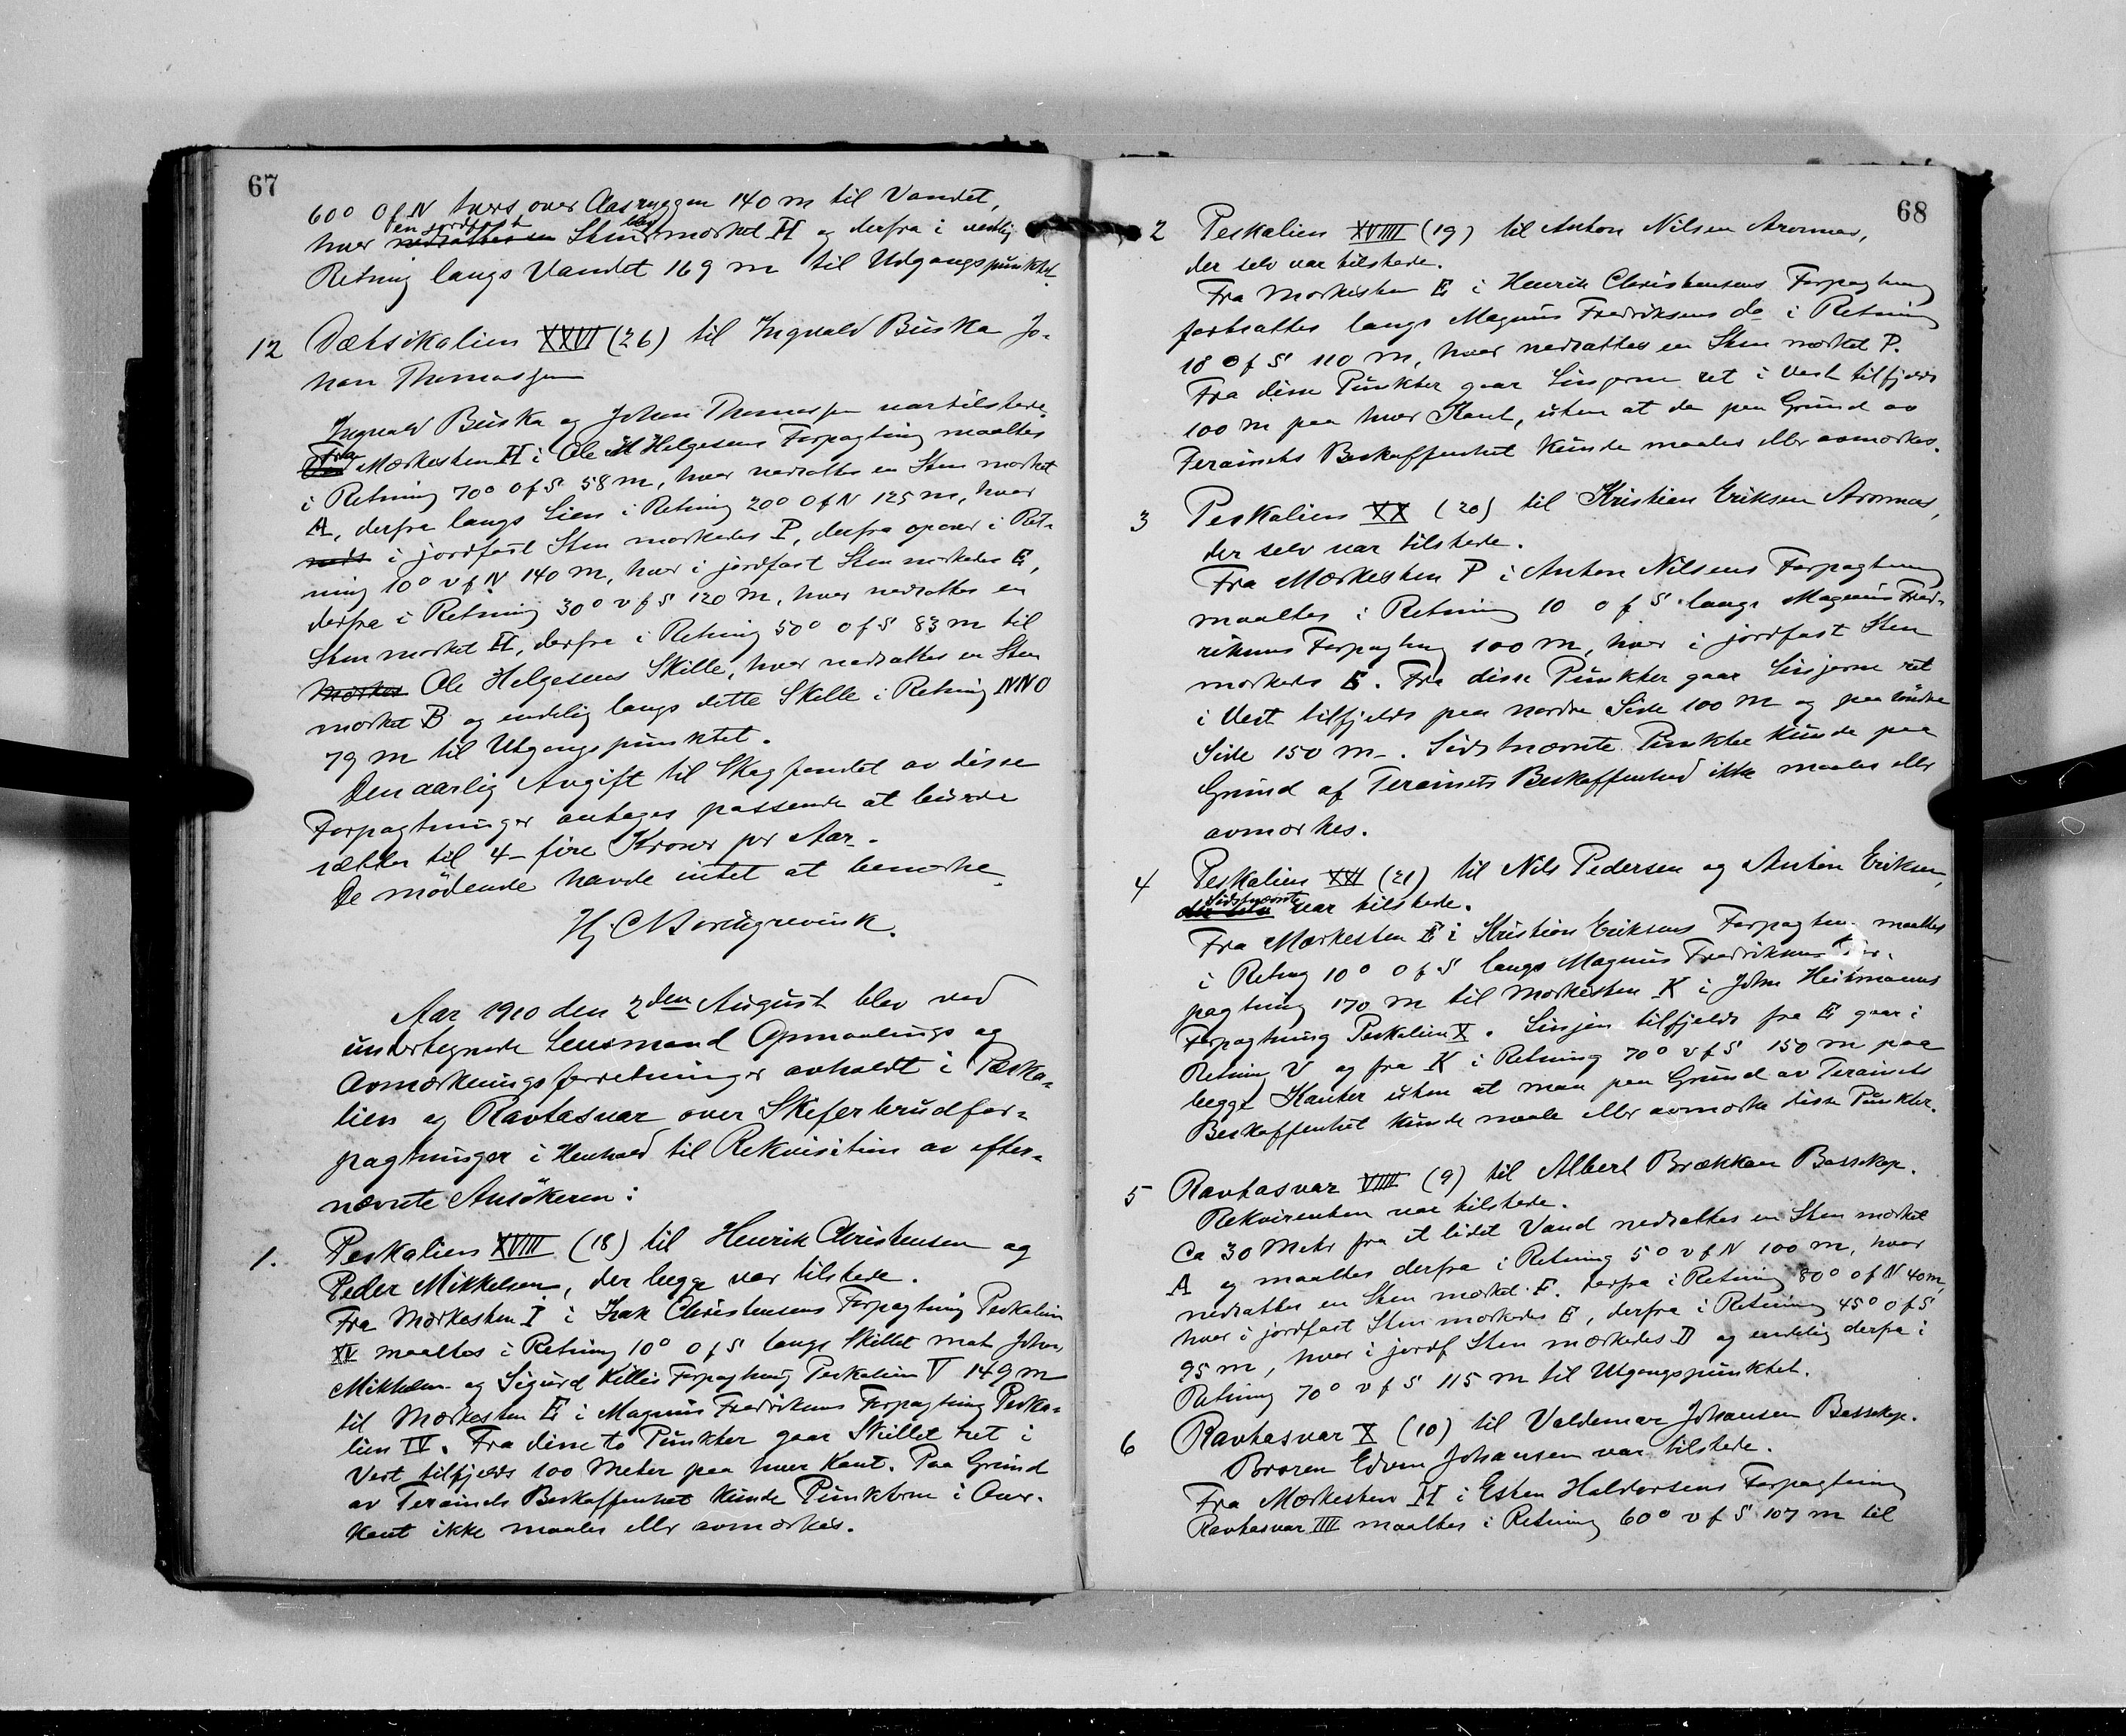 67
60° O f N tvers over Aasryggen 140 m til Vandet,
hvor en jordfast Sten blev mærket H og derfra i vestlig
Retning langs Vandet 169 m til Udgangspunktet.
12 Dætsikalien XXVI (26) til Ingvald Buska Jo-
han Thomassen
Ingvald Buska og Johan Thomassen var tilstede.
Fra Mærkesten H i Ole M Helgesens Forpagtning maaltes
i Retning 70° O f S 58 m, hvor nedsattes en Sten mærket
A, derfra langs Lien i Retning 20° O f N 125 m, hvor
i jordfast Sten mærkedes P, derfra opover i Ret-
ning 10° v f N 140 m, hvor i jordfast Sten mærkedes E,
derfra i Retning 30° v f S 120 m, hvor nedsattes en
Sten mærket H, derfra i Retning 50° O f S 83 m til
Ole Helgesens Skille, hvor nedsattes en Sten
mærket B og endelig langs dette Skille i Retning NNO
79 m til Utgangspunktet.
Den aarlig Avgift til Skogfondet av disse
Forpagtninger antages passende at burde
sættes til 4 - fire Kroner pr Aar.
De mødende havde intet at bemerke.
Hj. C Borchgrevink.
Aar 1910 den 2den August blev ved
undertegnede Lensmand Opmaalings og
Avmærkningsforretninger avholdt i Peska-
lien og Ravtasvar over Skiferbrudfor-
pagtninger i Henhold til Rekvisition av efter-
nævnte Ansøkeren:
1. Peskalien XVIII (18) til Henrik Christensen og
Peder Mikkelsen, der begge var tilstede.
Fra Mærkesten I i Isak Christensens Forpagtning Peskalien
XV maaltes i Retning 10° O f S langs Skillet mot Johan
Mikkelsen og Sigurd Killis Forpagtning Peskalien V 149 m
til Mærkesten E i Magnus Fredriksens Forpagtning Peska-
lien IV. Fra disse to Punkter gaar Skillet ret i
Vest tilfjelds 100 Meter paa hver Kant. Paa Grund
av Terainets Beskaffenhet kunde Punkterne i Over-
kant ikke maales eller avmærkes.
68
2 Peskalien XVIIII (19) til Anton Nilsen Aronnes,
der selv var tilstede.
Fra Mærkesten E i Henrik Christensens Forpagtning
fortsattes langs Magnus Fredriksens do i Retning
10 O f S 110 m, hvor nedsattes en Sten mærket P.
Fra disse Punkter gaar Linjerne ret i Vest tilfjelds
100 m paa hver Kant, uten at de paa Grund av
Terainets Beskaffenhet kunde maales eller avmærkes.
3 Peskalien XX (20) til Kristian Eriksen Aronnes,
der selv var tilstede.
Fra Mærkesten P i Anton Nilsens Forpagtning
maaltes i Retning 10 O f S langs Magnus Fred-
riksens Forpagtning 100 m, hvor i jordfast Sten
mærkedes E. Fra disse Punkter gaar Linjerne ret
i Vest tilfjelds paa nordre Side 100 m og paa søndre
Side 150 m. Sidstnævnte Punkter kunde paa
Grund af Terainets Beskaffenhed ikke maales eller
avmærkes.
4 Peskalien XXI (21) til Nils Pedersen og Anton Eriksen,
Sidstnævnte var tilstede.
Fra Mærkesten E i Kristian Eriksens Forpagtning maaltes
i Retng 10° O f S langs Magnus Fredriksens For-
pagtning 170 m til Mærkesten K i John Heitmanns
Forpagtning Peskalien X. Linjen tilfjelds fra E gaar i
Retning V og fra K i Retning 70° v f S 150 m paa
begge Kanter uten at man paa Grund av Terainets
Beskaffenhet kunde maale eller avmærke disse Punkter.
5 Ravtasvar VIIII (9) til Albert Brækkan Bossekop.
Rekvirenten var tilstede.
Ca 30 Meter fra et lidet Vand nedsattes en Sten mærket
A og maaltes derfra i Retning 5° v f N 100 m, hvor
nedsattes en Sten mærket F. derfra i Retning 80° O f N 40 m,
hvor i jordfast Sten mærkedes E, derfra i Retning 45° O f S
95 m, hvor i jordf Sten mærkedes D og endelig derfra i
Retning 70° v f S 115 m til Utgangspunktet.
6 Ravtasvar X (10) til Valdemar Johansen Bossekop.
Broren Edvin Johansen var tilstede.
Fra Mærkesten H i Esten Haldorsens Forpagtning
Ravtasvar IIII maaltes i Retning 60° v f S 107 m til